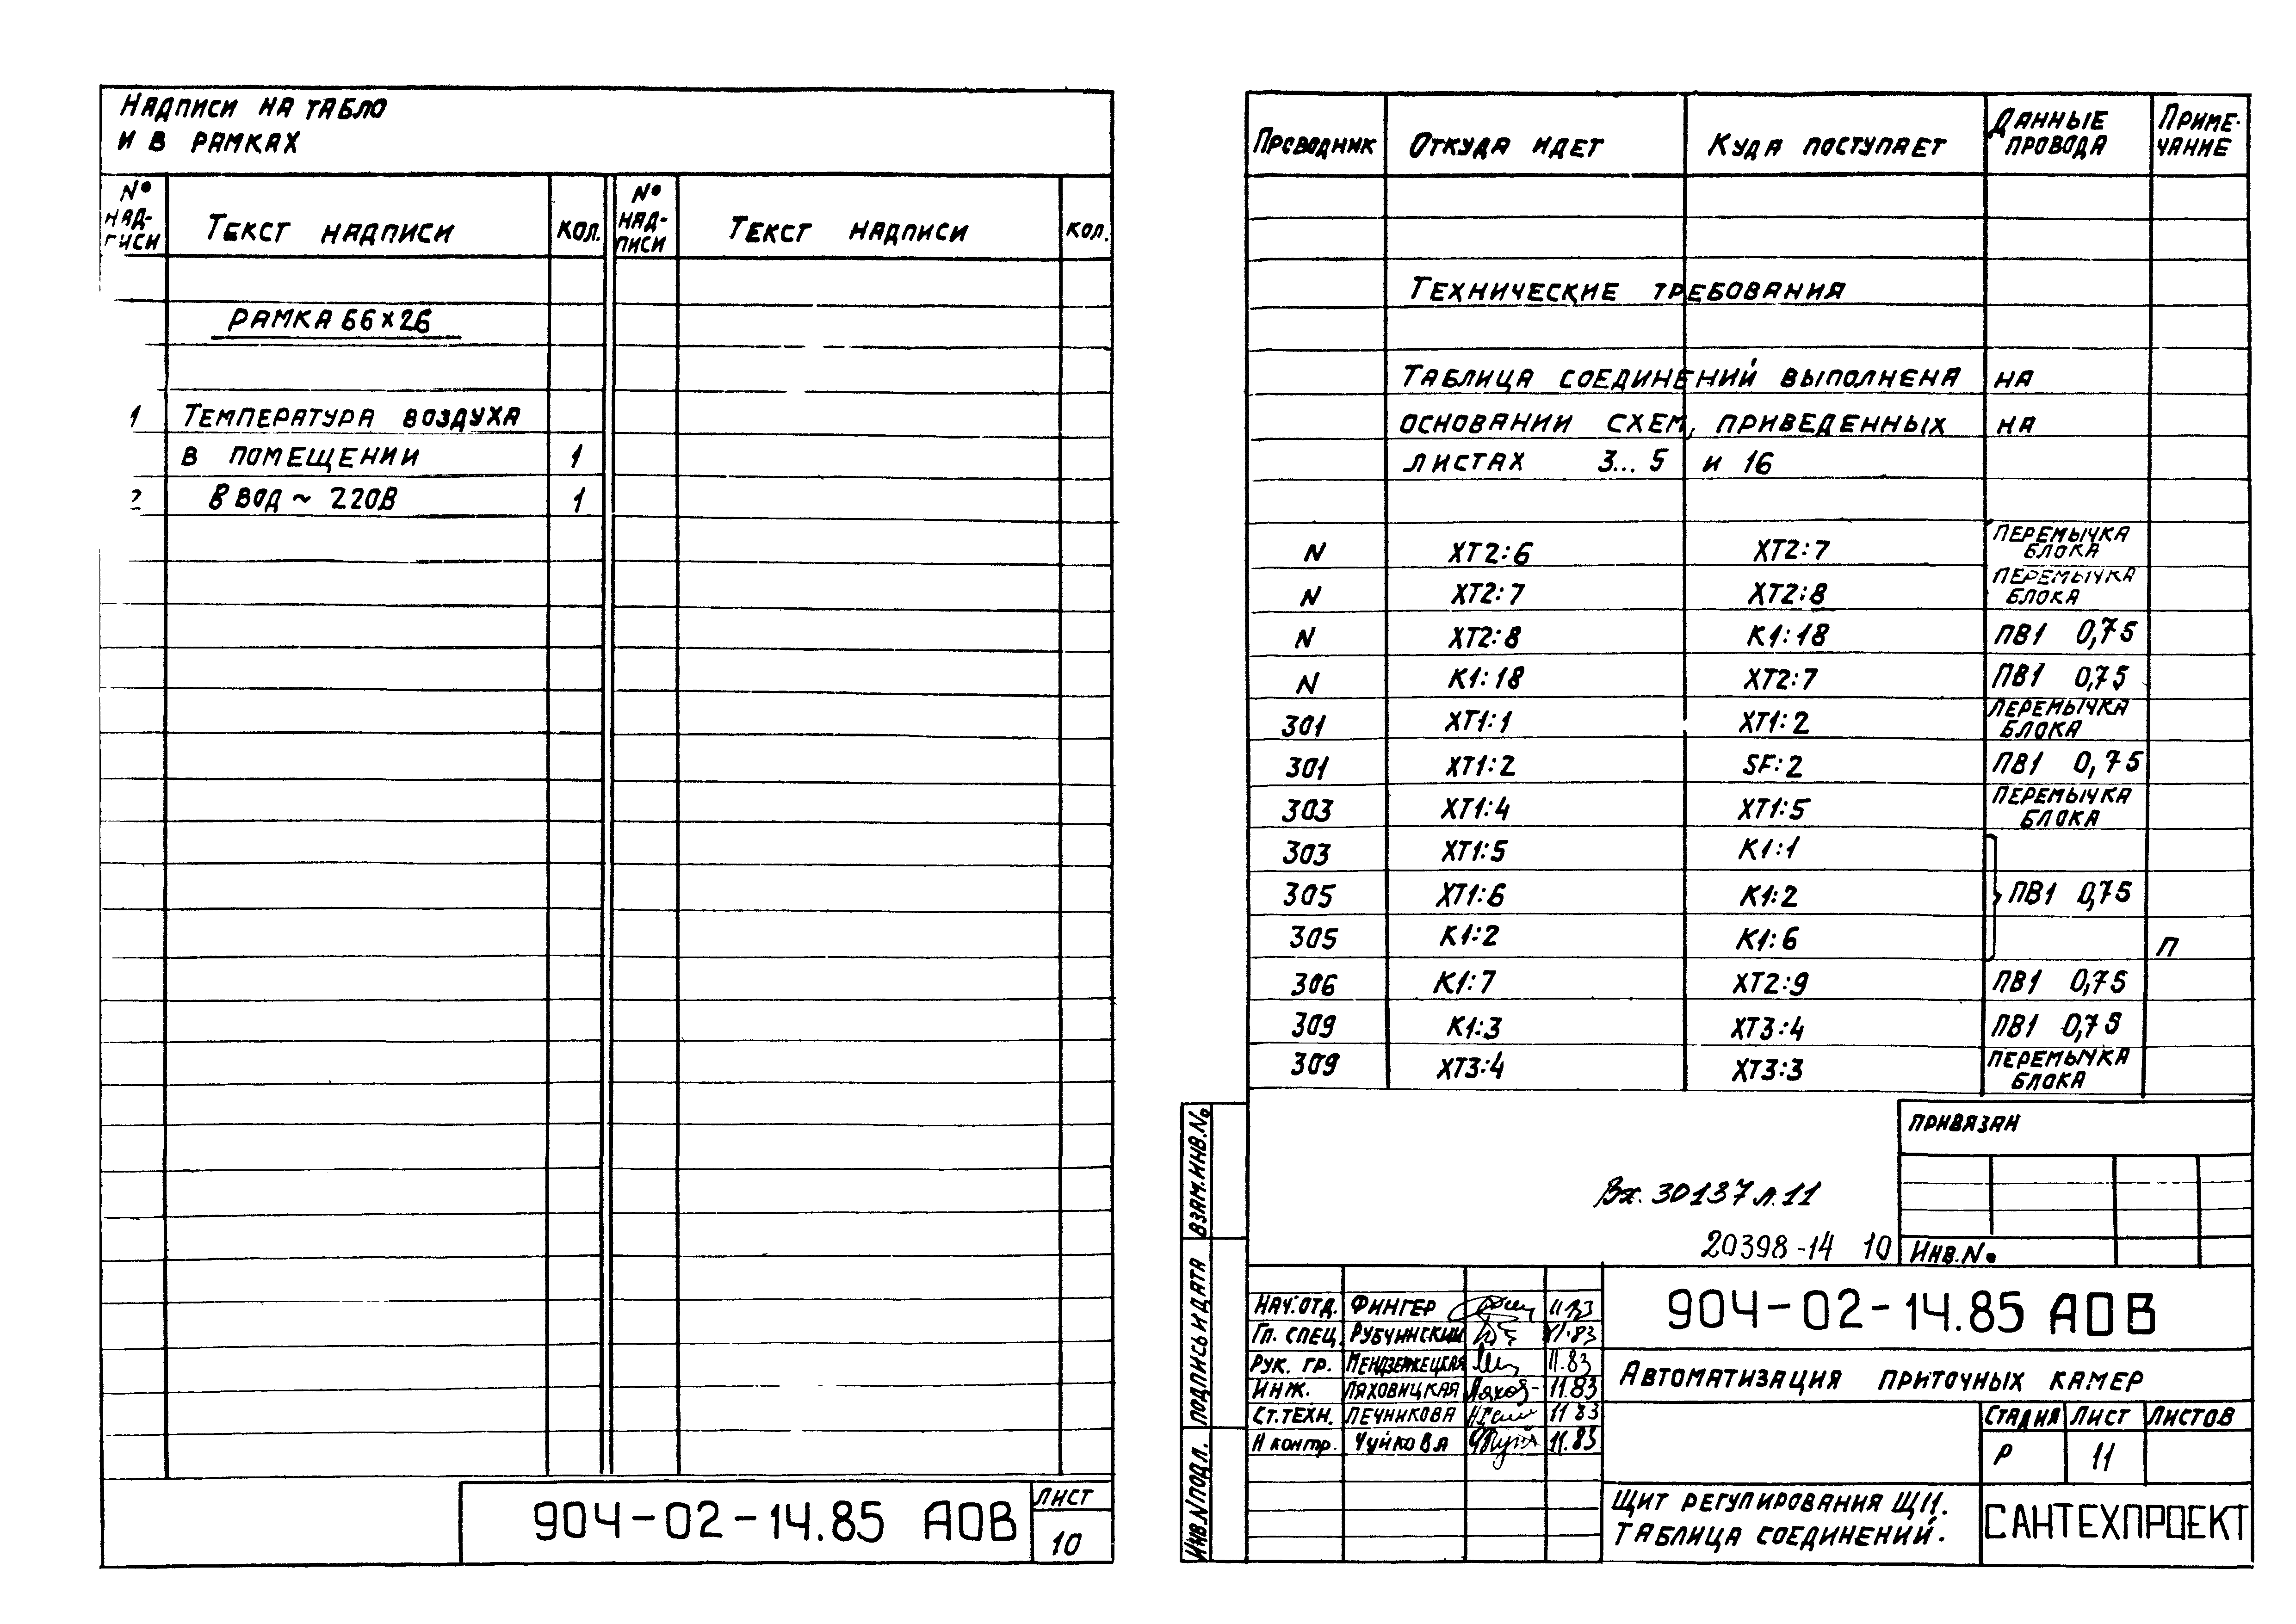 Надписи на табло
и в рамках
№ надписи Текст надписи кол. № надписи Текст надписи кол.
Рамка 66х26
1 Температура воздуха
в помещении 1
2 Ввод ~ 220В 1
904-02-14.85 АОВ
Лист
10
Проводник Откуда идет Куда поступает Данные провода Примечание
Технические требования
Таблица соединений выполнена на
основании схем, приведенных на
листах 3...5 и 16
N ХТ2:6 ХТ2:7 перемычка блока
N ХТ2:7 ХТ2:8 перемычка блока
N ХТ2:8 К1:18 ПВ1 0,75
N К1:18 ХТ2:7 ПВ1 0,75
301 ХТ1:1 ХТ1:2 перемычка блока
301 ХТ1:2 SF:2 ПВ1 0,75
303 ХТ1:4 ХТ1:5 перемычка блока
303 ХТ1:5 К1:1
305 ХТ1:6 К1:2 ПВ1 0,75
305 К1:2 К1:6 П
306 К1:7 ХТ2:9 ПВ1 0,75
309 К1:3 ХТ3:4 ПВ1 0,75
309 ХТ3:4 ХТ3:3 перемычка блока
Привязан
Вх. 30137 л.11
20398-14 10
Инв.№
Взам.инв.№
Подпись и дата
Инв.№ подл.
Нач.отд. Фингер 11.83
Гл. спец. Рубчинский 11.83
Рук. гр. 11.83
Инж. Ляховицкая 11.83
Ст.техн. Печникова 11 83
Н контр. Чуйкова 11.83
904-02-14.85 АОВ
Автоматизация приточных камер
Стадия Лист Листов
Р 11
Щит регулирования Щ11.
Таблица соединений.
САНТЕХПРОЕКТ